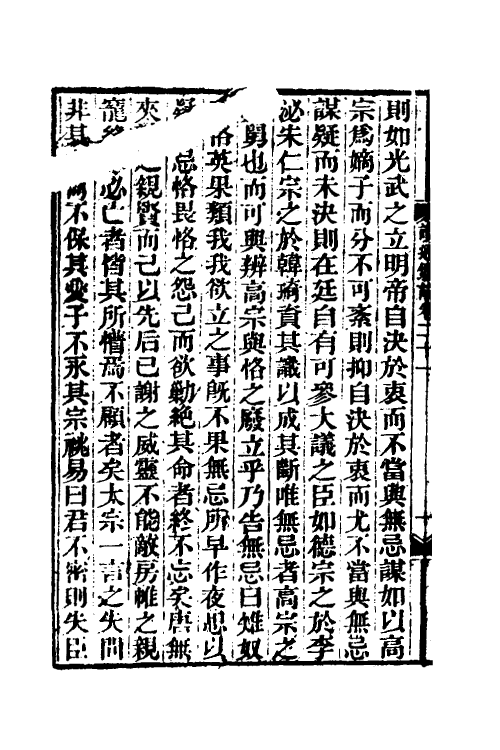 則如光武之立明帝自決於衷而不當與無忌謀如以高
宗爲嫡子而分不可紊則抑自決於衷而尤不當與無忌
謀疑而未決則在廷自有可參大議之臣如德宗之於李
泌朱仁宗之於韓琦資其識以成其斷唯無忌者高宗之
舅也而可與辨高宗與恪之廢立乎乃告無忌曰雉奴
恪英果類我我欲立之事旣不果無忌所早作夜思以
忌恪畏恪之怨己而欲勦絶其命者終不忘矣唐無
夾之親賢而己以先后已謝之威靈不能敵房帷之親
寵必亡者皆其所憎焉不顧者矣太宗一言之失問
非其不保其愛子不永其宗祧易曰君不密則失臣
讀通鑑論卷二十